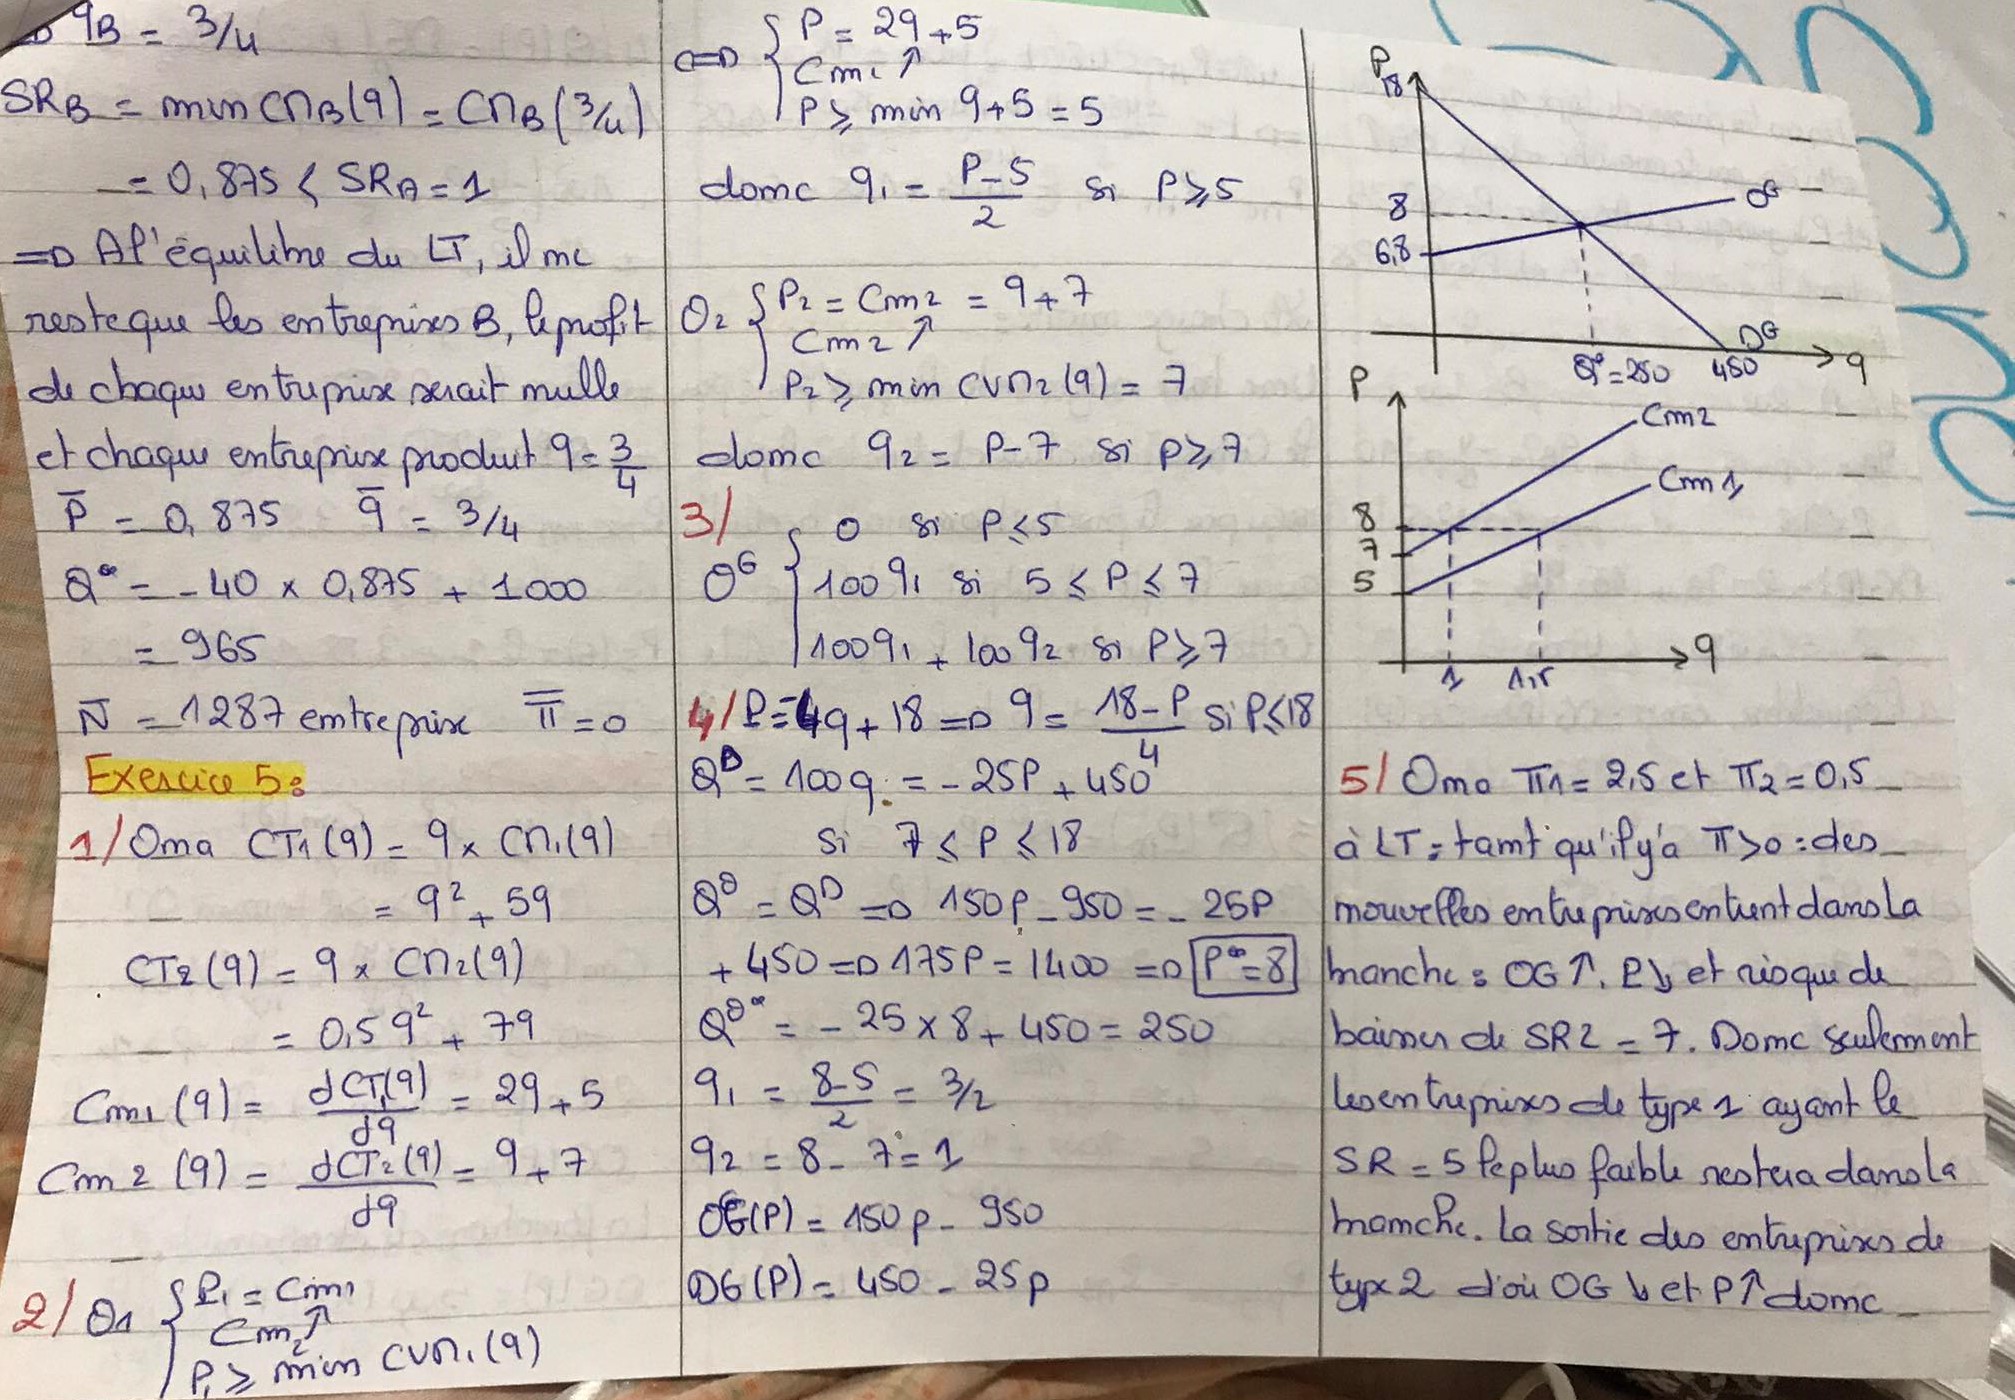 => qB = 3/4
SRB = min CMB(q) = CMB(3/4)
= 0,875 < SRA = 1
=> A l'équilibre du LT, il ne
reste que les entreprises B, le profit
de chaque entreprise serait nulle
et chaque entreprise produit q = 3/4
P̄ = 0,875 q̄ = 3/4
Q* = - 40 x 0,875 + 1000
= 965
N̄ = 1287 entreprise π̄ = 0
Exercice 5:
1/ Ona CT1(q) = q x CM1(q)
= q² + 5q
CT2(q) = q x CM2(q)
= 0,5q² + 7q
Cm1(q) = dCT1(q)/dq = 2q + 5
Cm2(q) = dCT2(q)/dq = q + 7
2/ O1 { P1 = Cm1
Cm2 ↑
P1 ≥ min CVM1(q)
<=> { P = 2q + 5
Cm1 ↑
P ≥ min q + 5 = 5
donc q1 = P - 5 / 2 si P ≥ 5
O2 { P2 = Cm2 = q + 7
Cm2 ↑
P2 ≥ min CVM2(q) = 7
donc q2 = P - 7 si P ≥ 7
3/ 0 si P ≤ 5
OG { 100q1 si 5 ≤ P ≤ 7
100q1 + 100q2 si P ≥ 7
4/ P = -4q + 18 => q = 18 - P / 4 si P ≤ 18
QD = 100q = - 25P + 450
si 7 ≤ P ≤ 18
QO = QD => 150P - 950 = - 25P
+ 450 => 175P = 1400 => P* = 8
QO* = - 25 x 8 + 450 = 250
q1 = 8 - 5 / 2 = 3/2
q2 = 8 - 7 = 1
OG(P) = 150p - 950
DG(P) = 450 - 25p
P
18
OG
8
6,8
DG
Q* = 250 450 q
P
Cm2
Cm1
8
7
5
q
1 1,5
5/ Ona π1 = 2,5 et π2 = 0,5
à LT: tant qu'il y'a π>0 : des
nouvelles entreprises entrent dans la
branche : OG ↑. P ↘ et risque de
baisser de SR2 = 7. Donc seulement
les entreprises de type 1 ayant le
SR = 5 le plus faible restera dans la
branche. La sortie des entreprises de
type 2 d'où OG ↘ et P ↑ donc